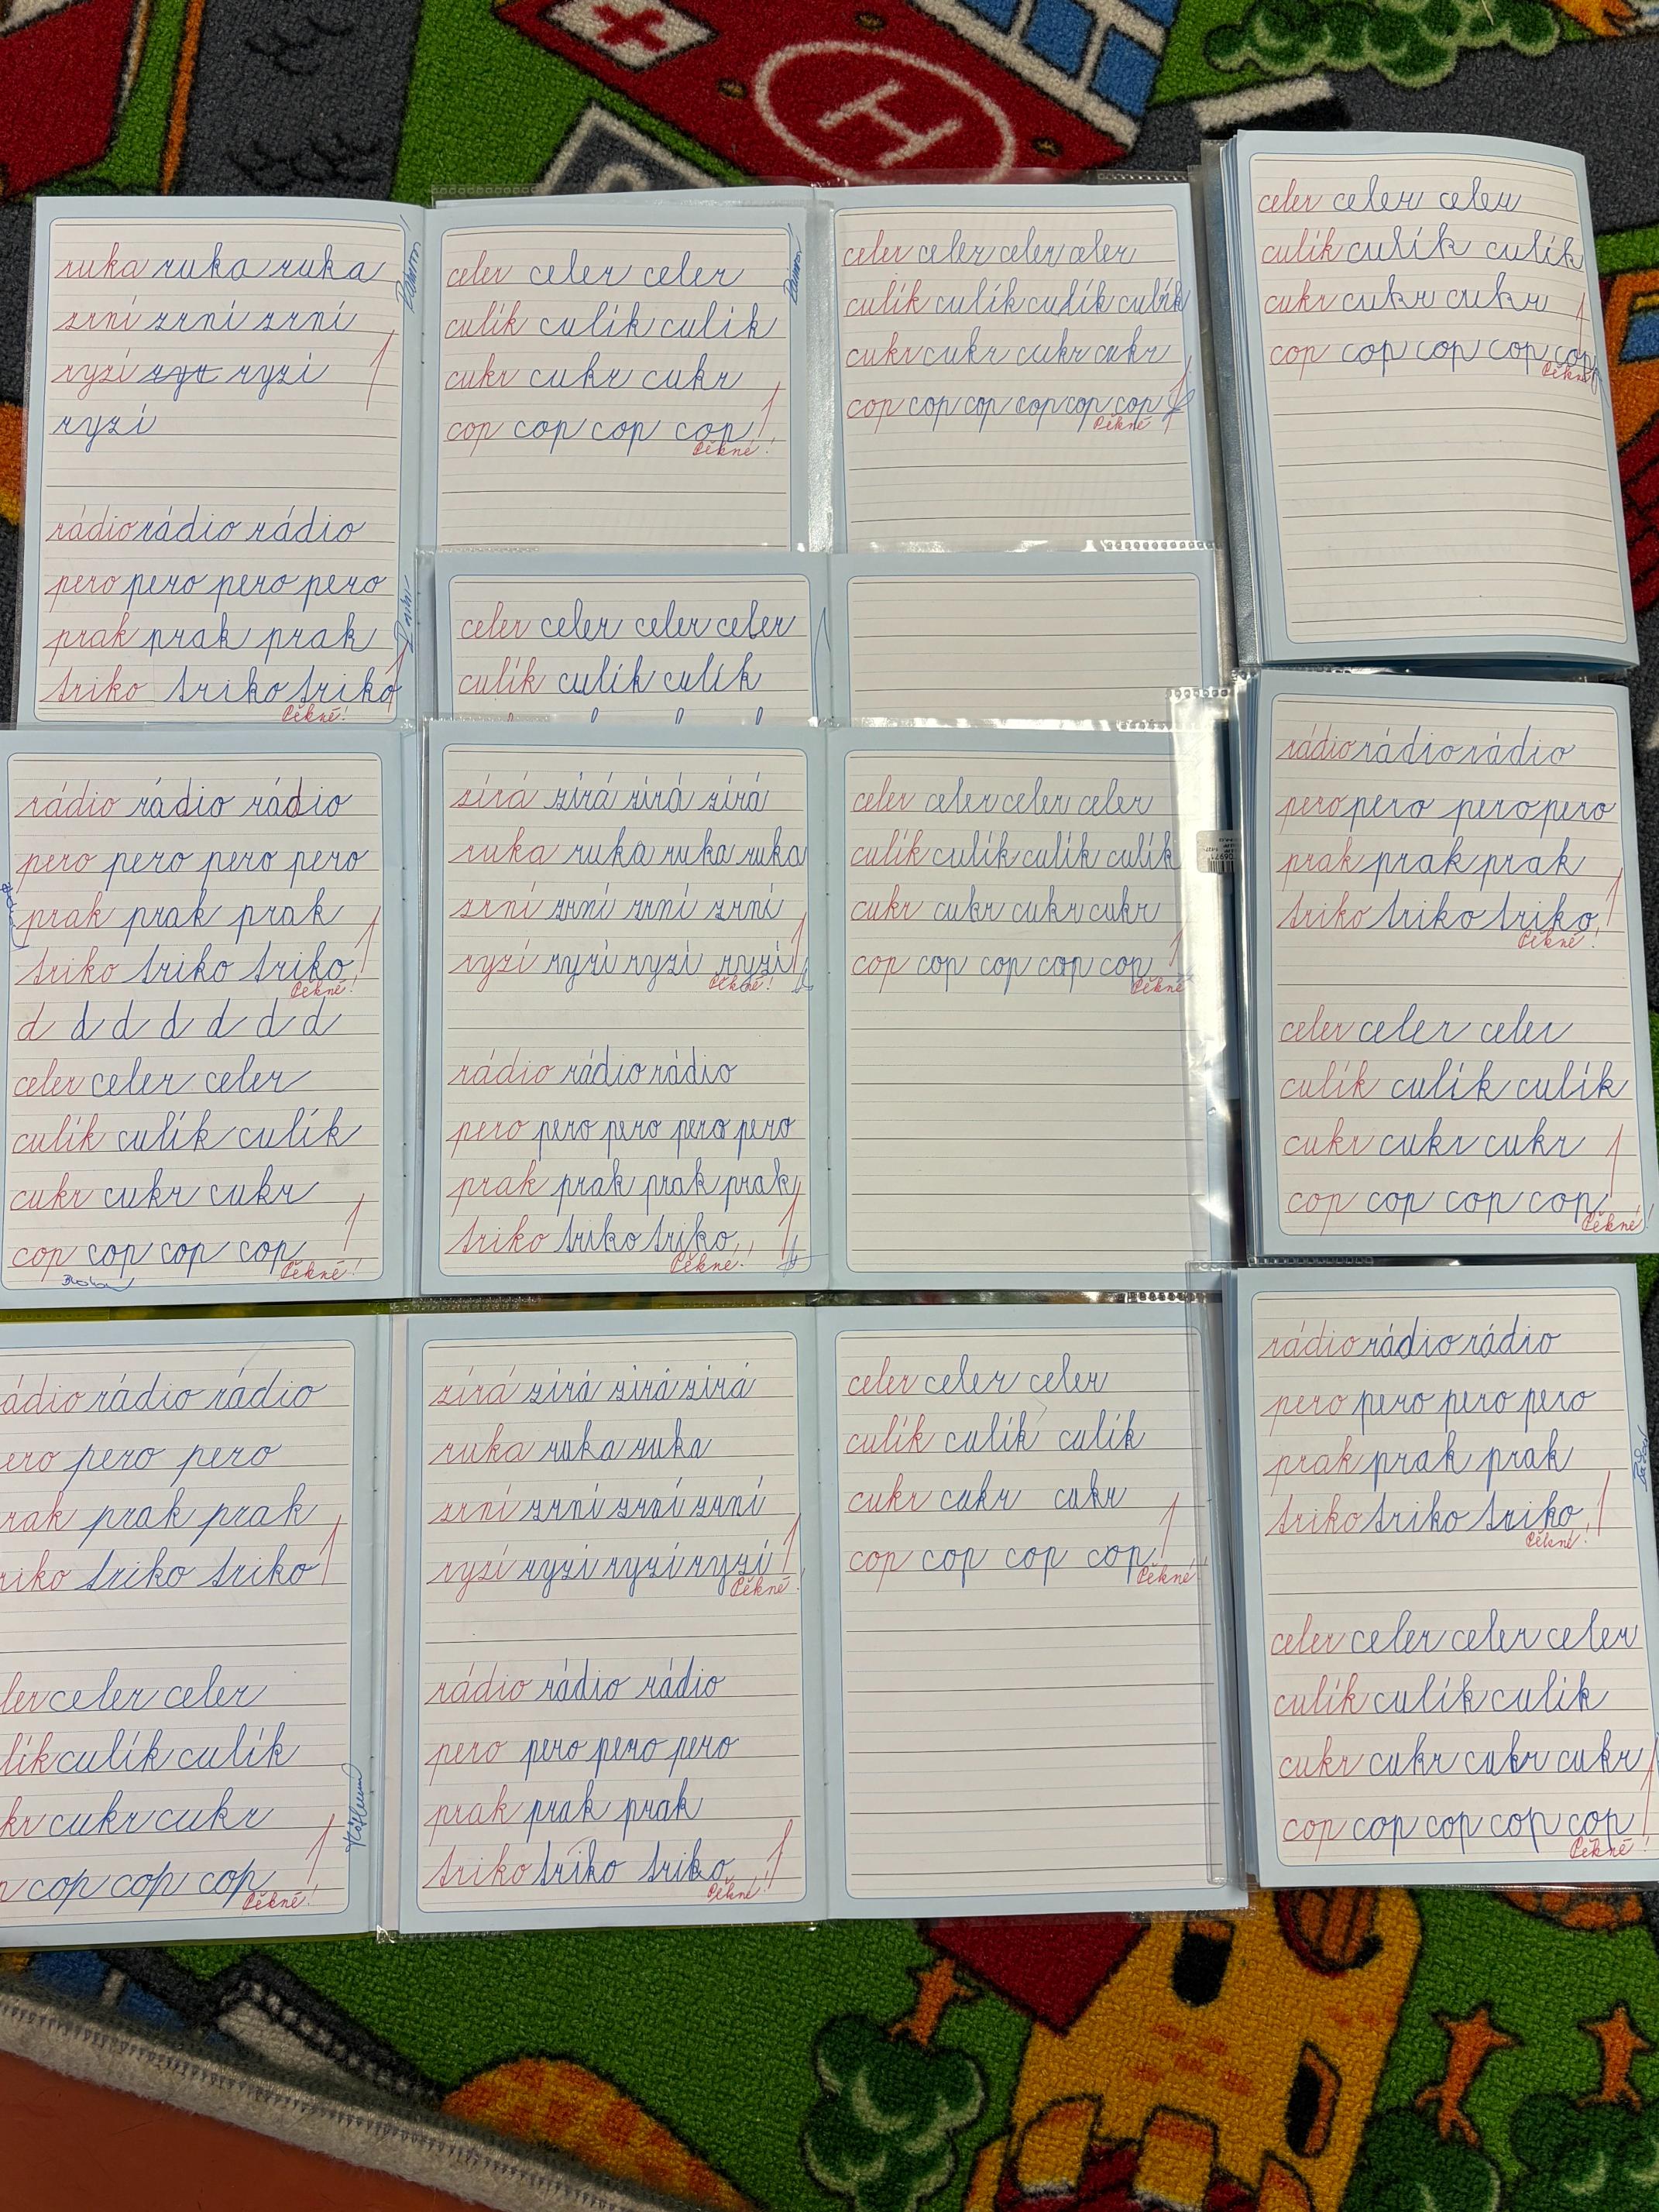 H
ruka ruka ruka
zrní zrní zrní
ryzí ryzi
ryzí
rádio rádio rádio
pero pero pero pero
prak prak prak
triko triko triko
Pěkné!
celer celer celer
culík culík culík
cukr cukr cukr
cop cop cop cop
Pěkné!
celer celer celer celer
culík culík culík culík
cukr cukr cukr cukr
cop cop cop cop cop cop
Pěkné!
celer celer celer
culík culík culík
cukr cukr cukr
cop cop cop cop cop
Pěkné!
celer celer celer celer
culík culík culík
rádio rádio rádio
pero pero pero pero
prak prak prak
triko triko triko
Pěkné!
d d d d d d d
celer celer celer
culík culík culík
cukr cukr cukr
cop cop cop cop
Pěkné!
zírá zírá zírá zírá
ruka ruka ruka ruka
zrní zrní zrní zrní
ryzí ryzí ryzí ryzí
Pěkné!
rádio rádio rádio
pero pero pero pero pero
prak prak prak prak
triko triko triko
Pěkné!
celer celer celer celer
culík culík culík culík
cukr cukr cukr cukr
cop cop cop cop cop
Pěkné
rádio rádio rádio
pero pero pero pero
prak prak prak
triko triko triko
Pěkné!
celer celer celer
culík culík culík
cukr cukr cukr
cop cop cop cop
Pěkné!
ádio rádio rádio
ero pero pero
rak prak prak
riko triko triko
ler celer celer
lík culík culík
kr cukr cukr
cop cop cop
Pěkné!
zírá zírá zírá zírá
ruka ruka ruka
zrní zrní zrní zrní
ryzí ryzí ryzí ryzí
Pěkné!
rádio rádio rádio
pero pero pero pero
prak prak prak
triko triko triko
Pěkné!
celer celer celer
culík culík culík
cukr cukr cukr
cop cop cop cop
Pěkné
rádio rádio rádio
pero pero pero pero
prak prak prak
triko triko triko
Pěkné!
celer celer celer celer
culík culík culík
cukr cukr cukr cukr
cop cop cop cop cop
Pěkné!